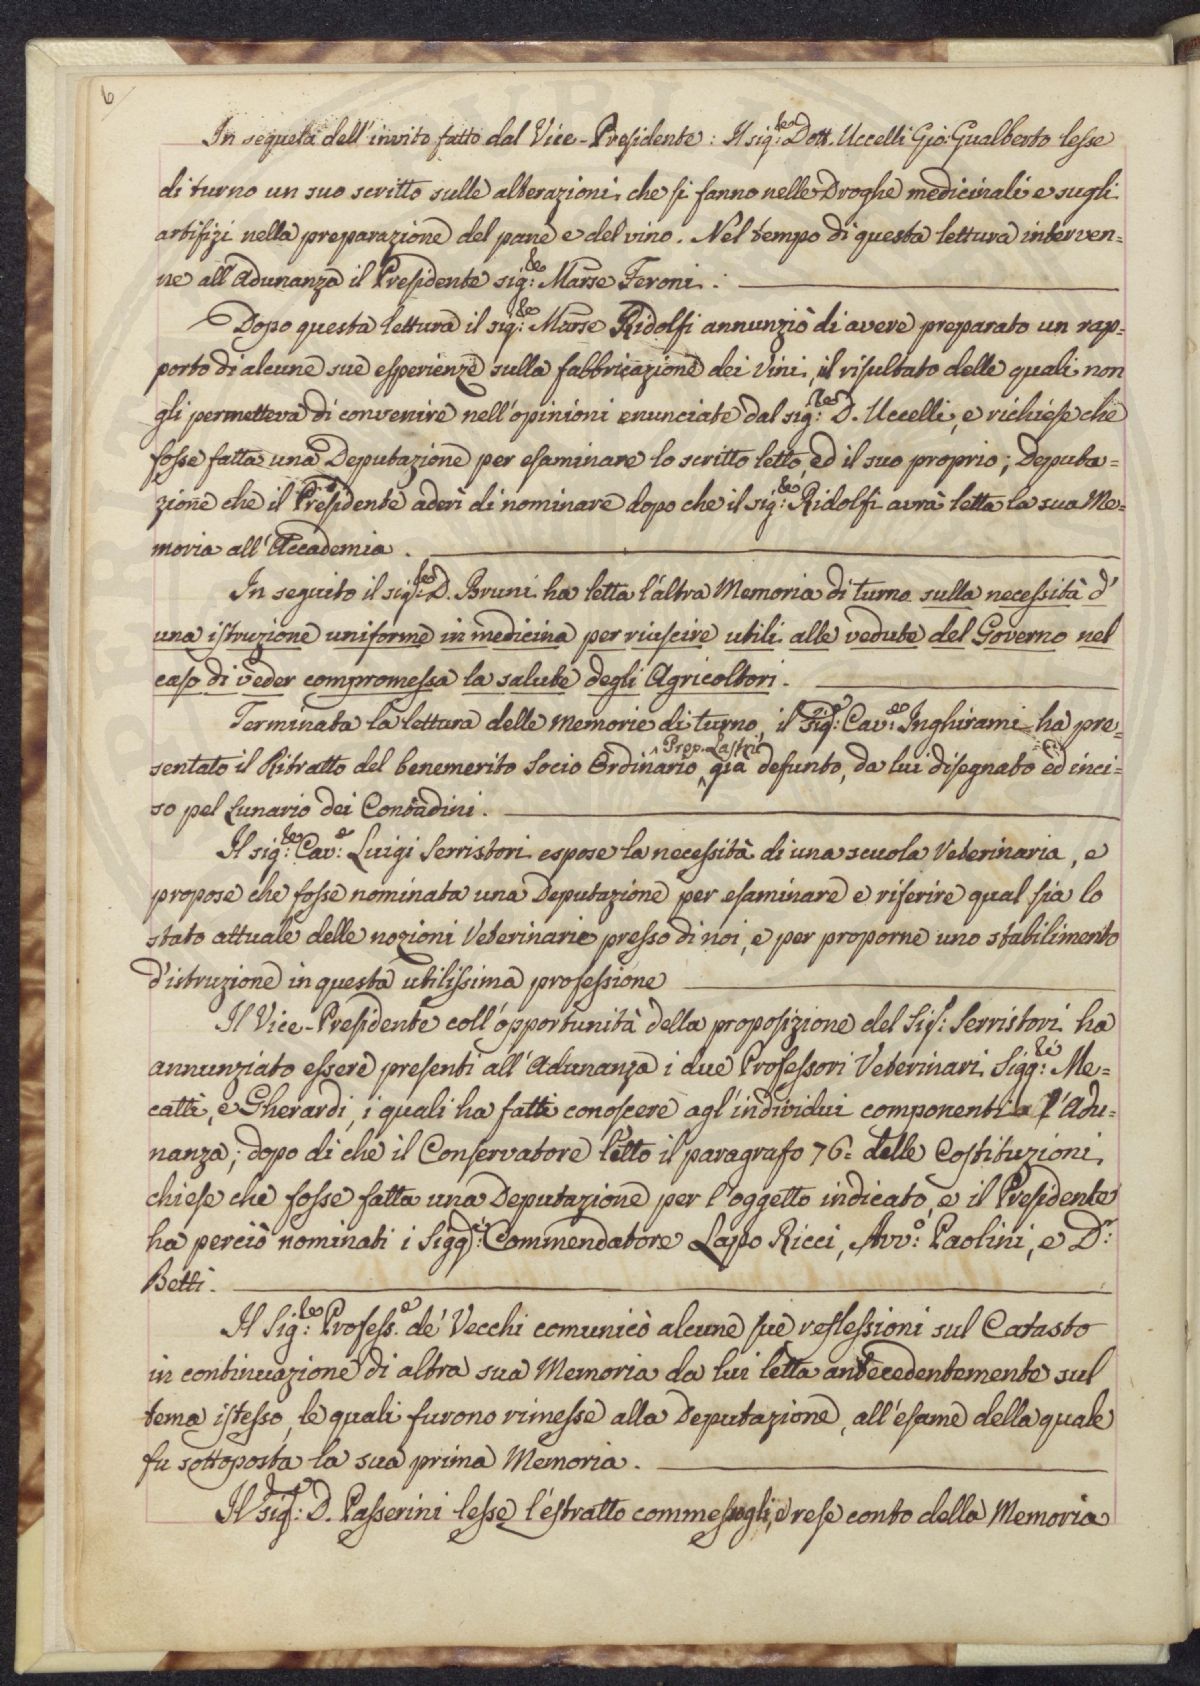 6
In sequela dell'invito fatto dal Vice-Presidente: Il sig:re Dott. Uccelli Gio: Gualberto lesse
di turno un suo scritto sulle alterazioni che si fanno nelle Droghe medicinali e sugli
artifizi nella preparazione del pane e del vino. Nel tempo di questa lettura interven=
ne all'Adunanza il Presidente sig:re Marse Feroni.
Dopo questa lettura il sig:re Marse Ridolfi annunziò di avere preparato un rap=
porto di alcune sue esperienze sulla fabbricazione dei Vini, il risultato delle quali non
gli permetteva di convenire nell'opinioni enunciate dal sig:re D. Uccelli, e richiese che
fosse fatta una Deputazione per esaminare lo scritto letto, ed il suo proprio; Deputa=
zione che il Presidente aderì di nominare dopo che il sig:re Ridolfi avrà letta la sua Me=
moria all'Accademia.
In seguito il sig:re D. Bruni ha letta l'altra Memoria di turno sulla necessità d'
una istruzione uniforme in medicina per riuscire utili alle vedute del Governo nel
caso di veder compromessa la salute degli Agricoltori.
Terminata la lettura delle memorie di turno, il sig:re Cav:re Inghirami ha pre=
sentato il Ritratto del benemerito Socio Ordinario Prop. Lastri già defunto, da lui disegnato ed inci=
so pel Lunario dei Contadini.
Il sig:re Cav:e Luigi Serristori espose la necessità di una scuola Veterinaria, e
propose che fosse nominata una Deputazione per esaminare e riferire qual sia lo
stato attuale delle nozioni Veterinarie presso di noi, e per proporne uno stabilimento
d'istruzione in questa utilissima professione
Il Vice-Presidente coll'opportunità della proposizione del Sig: Serristori ha
annunziato essere presenti all'Adunanza i due Professori Veterinari Sigg:ri Me=
catti, e Gherardi, i quali ha fatti conoscere agl'individui componenti l'Adu=
nanza; dopo di che il Conservatore letto il paragrafo 76= delle Costituzioni,
chiese che fosse fatta una Deputazione per l'oggetto indicato, e il Presidente
ha perciò nominati i Sigg:i Commendatore Lapo Ricci, Avv:o Paolini, e D:r
Betti.
Il Sig:re Profess.e de' Vecchi comunicò alcune sue reflessioni sul Catasto
in continuazione di altra sua Memoria da lui letta antecedentemente sul
tema istesso, le quali furono rimesse alla Deputazione, all'esame della quale
fu sottoposta la sua prima Memoria.
Il sig:re D. Passerini lesse l'estratto commessogli, e rese conto della Memoria